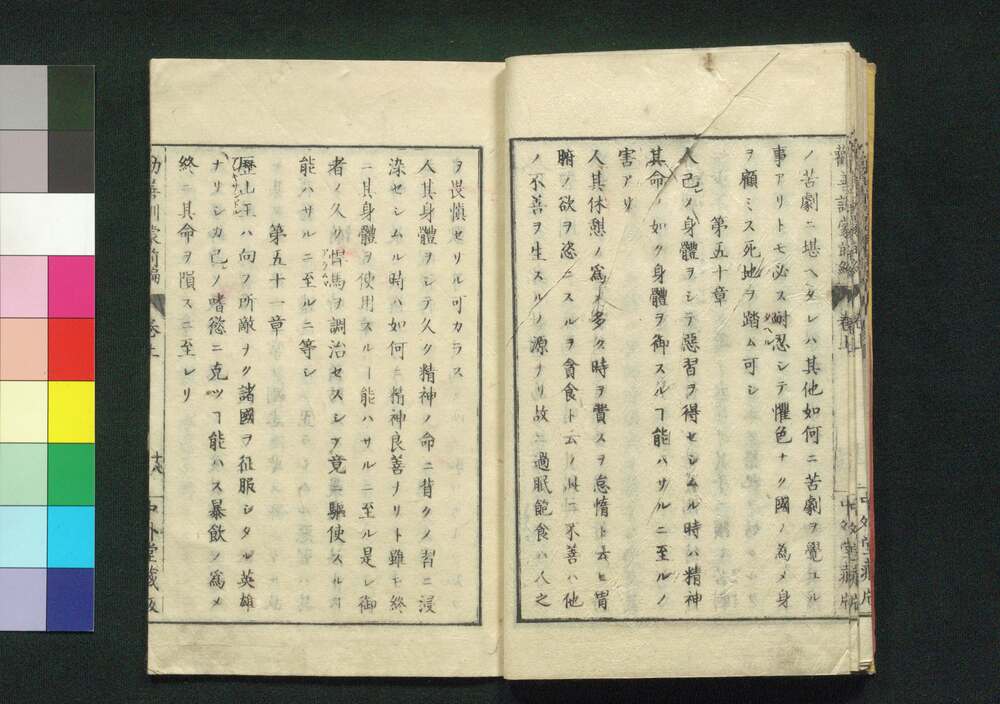 ノ苦劇ニ堪ヘタレハ其他如何ニ苦劇ヲ覺ユル
事アリトモ必ス耐忍シテ懼色ナク國ノ為メ身
ヲ顧ミス死地ヲ踏ム可シ
第五十章
人己ノ身體ヲシテ惡習ヲ得セシムル時ハ精神
其命ノ如ク身體ヲ御スルヿ能ハサルニ至ルノ
害アリ
人其休憩ノ爲メ多ク時ヲ費スヲ怠惰ト云ヒ胃
腑ノ欲ヲ恣ニスルヲ貪食ト云フ此二不善ハ他
ノ不善ヲ生スルノ源ナリ故ニ過眠飽食ハ人之
ヲ畏愼セサル可カラス
人其身體ヲシテ久ク精神ノ命ニ背クノ習ニ浸
染セシムル時ハ如何ニ精神良善ナリト雖モ終
ニ其身體ヲ使用スルヿ能ハサルニ至ル是レ御
者ノ久ク悍馬ヲ調治セスシテ竟ニ驅使スル
能ハサルニ至ルニ等シ
第五十一章
歴山王ハ向フ所敵ナク諸國ヲ征服シタル英雄
ナリシカ己ノ嗜慾ニ克ツヿ能ハス暴飮ノ爲メ
終ニ其命ヲ隕スニ至レリ
勸善訓蒙前編 卷之上 中外堂藏版